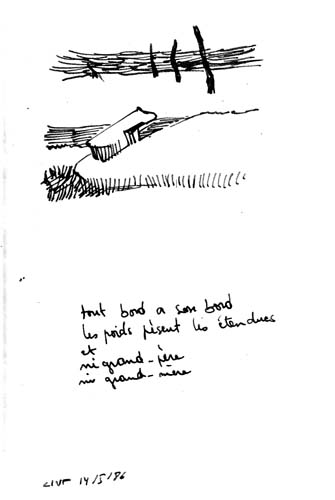 tout bord a son bord
les poids pèsent les étendues
et
ni grand-père
ni grand-mère
14/5/86